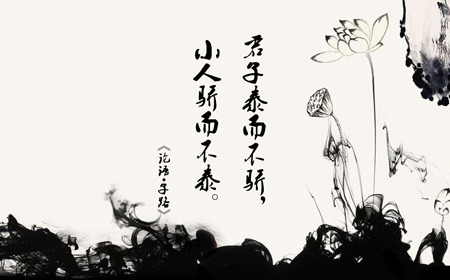 君子泰而不骄，
小人骄而不泰。
《论语·子路》